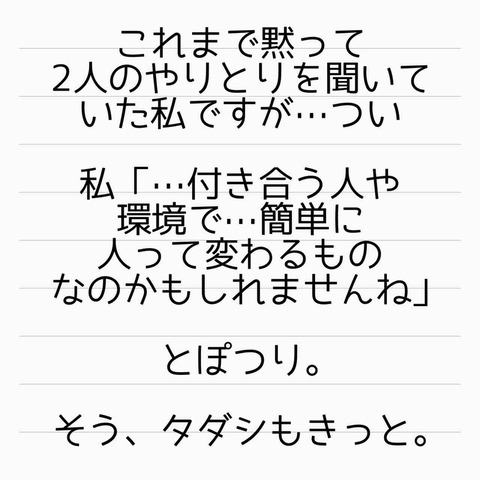 これまで黙って
2人のやりとりを聞いて
いた私ですが…つい
私「…付き合う人や
環境で…簡単に
人って変わるもの
なのかもしれませんね」
とぽつり。
そう、タダシもきっと。